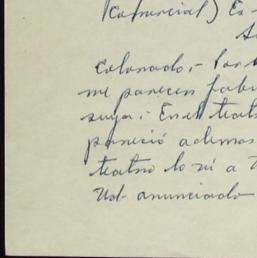 (Comercial) Ex-
Colorado,- Por
me parecen fabu
suya.- En el teat
pareció ademas
teatro lo vi a
Ud. anunciado